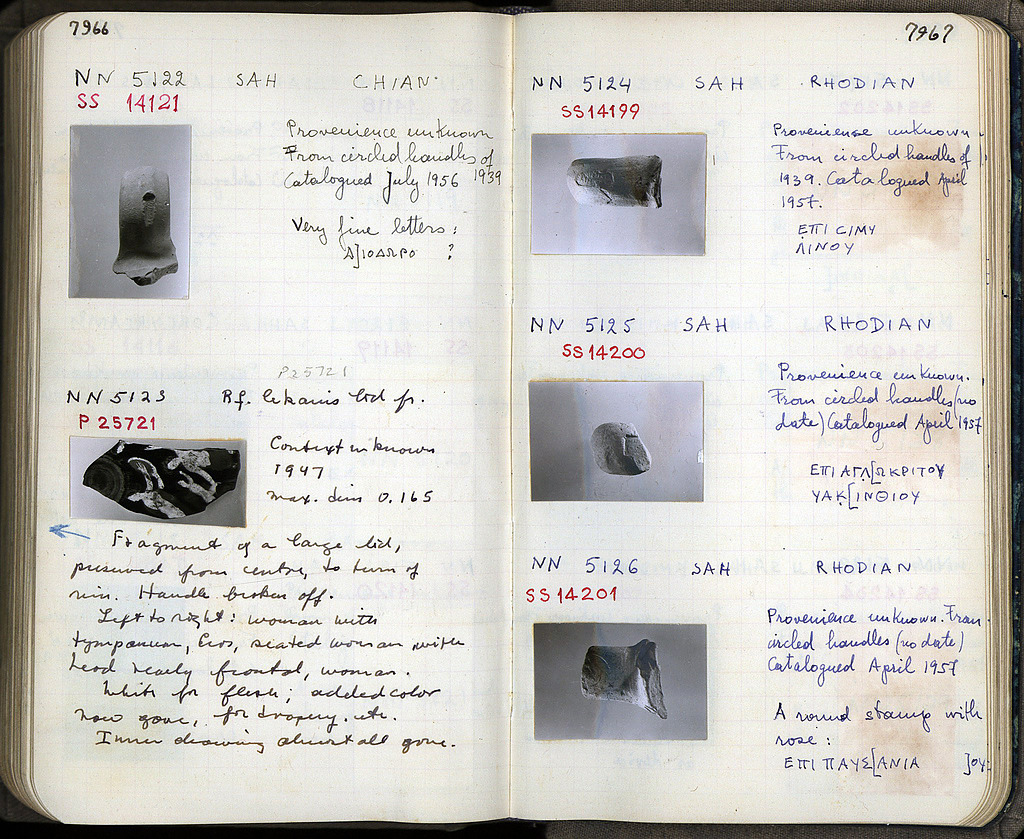 7966
NN 5122 SAH CHIAN
SS 14121
Provenience unknown
From circled handles of
1939
Catalogued July 1956
Very fine letters:
Δ]ΙΟΔΩΡΟ ?
P25721
NN 5123 R.f. lekanis lid fr.
P 25721
Context unknown
1947
max. dim 0.165
Fragment of a large lid,
preserved from centre, to turn of
rim. Handle broken off.
Left to right: woman with
tympanum, Eros, seated woman with
head nearly frontal, woman.
White for flesh; added color
now gone, for drapery. etc.
Inner drawing almost all gone.
7967
NN 5124 SAH RHODIAN
SS 14199
Provenience unknown.
From circled handles of
1939. Catalogued April
1957.
ΕΠΙ CΙΜΥ
ΛΙΝΟΥ
NN 5125 SAH RHODIAN
SS 14200
Provenience unknown.
From circled handles (no
date) Catalogued April 1957
ΕΠΙ ΑΓΛ[ΩΚΡΙΤΟΥ
ΥΑΚ[ΙΝΘΙΟΥ
NN 5126 SAH RHODIAN
SS 14201
Provenience unknown. From
circled handles (no date)
Catalogued April 1957
A round stamp with
rose:
ΕΠΙ ΠΑΥΣ[ΑΝΙΑ ]ΟΥ